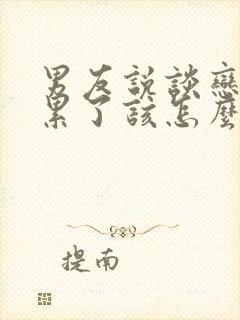 男友説談戀
累了該怎麼
提南